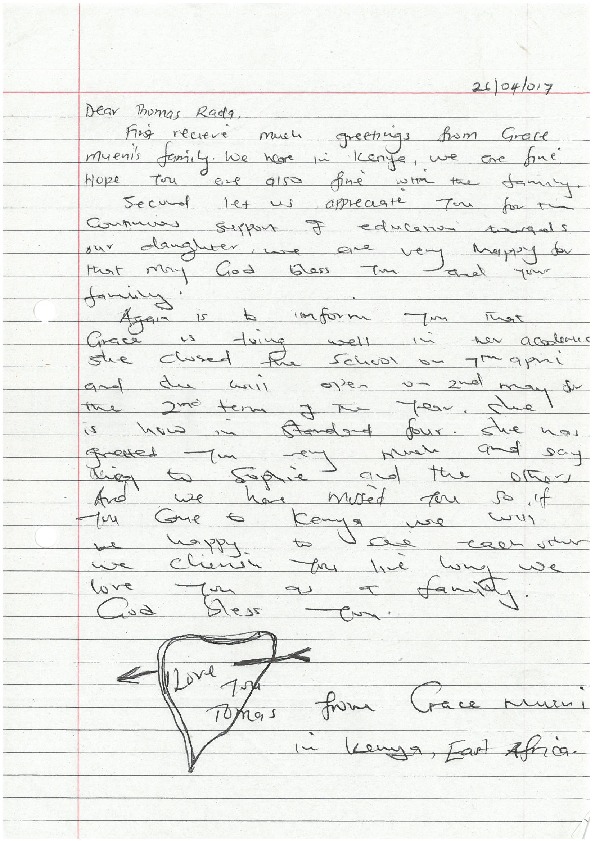 26/04/017
Dear Thomas Rada.
First recieve much greetings from Grace
Mueni's family. We here in Kenya, we are fine
Hope you are also fine with the family.
Second let us appreciate you for the
Continuous support of education towards
our daughter, we are very happy for
that may God bless you and your
family.
Again is to inform you that
Grace is doing well in her academic
she closed the school on 7th april
and will open on 2nd may for
the 2nd term of the year. She
is now in Standard four. She has
greeted you very much and say
to Sophie and the others
And we have missed you so if
you come to Kenya we will
be happy to see each other
we cherish you live long we
love you as a family.
God bless you.
I Love
You
Tomas
from Grace Mueni
in Kenya, East Africa.